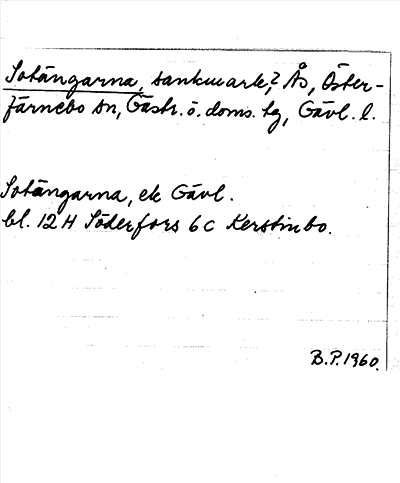 Sotängarna, sankmark, ? Ås, Öster-
färnebo sn, Gästr. ö. doms. tg, Gävl. l.
Sotängarna, ek Gävl.
bl. 12 H Söderfors 6 c Kerstinbo.
B.P. 1960.